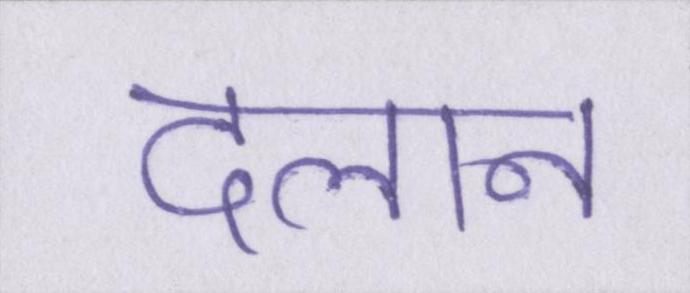 दलान